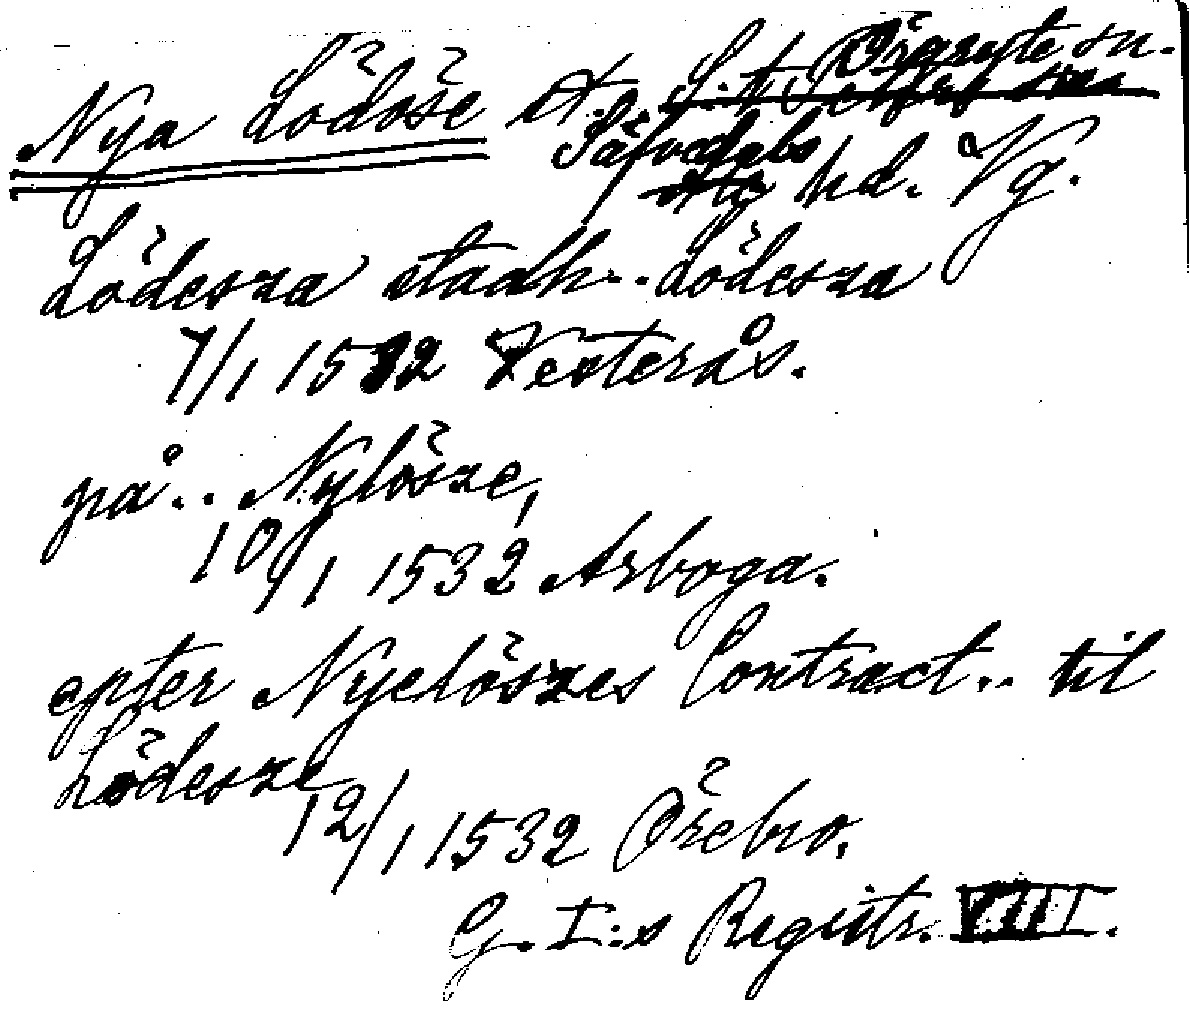 Nya Lödöse st. Örgryte sn.
S:t Peders sn
Säfvedals hd. Vg.
Lödesza stadh .. Lödesza
7/1 1532 Vesterås.
på .. Nylösze,
10/1 1532 Arboga.
epter Nyelöszes Contract .. til
Lödesze
12/1 1532 Örebro.
G. I:s Registr. VIII.